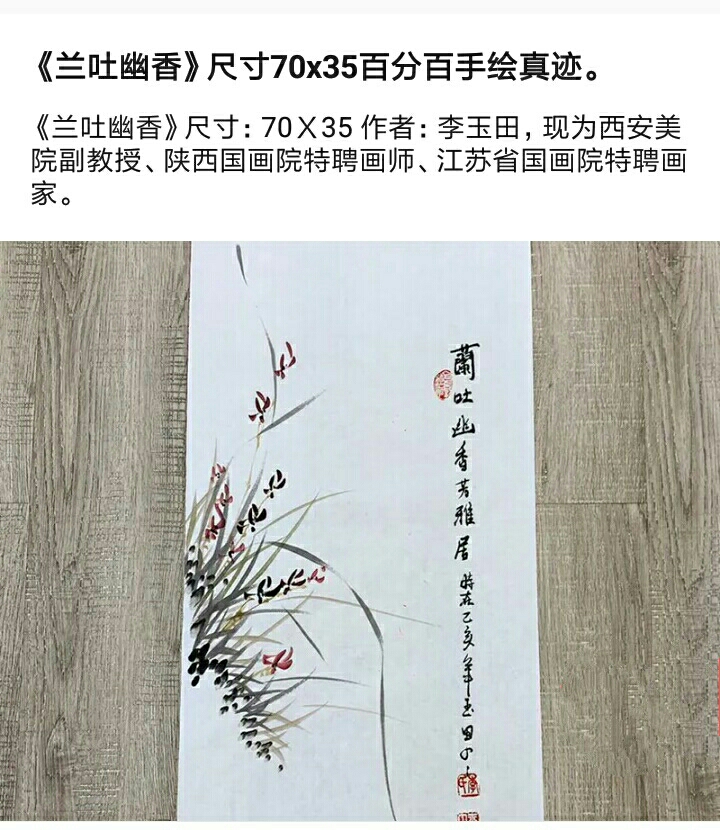 《兰吐幽香》尺寸70x35百分百手绘真迹。
《兰吐幽香》尺寸：70X35 作者：李玉田，现为西安美
院副教授、陕西国画院特聘画师、江苏省国画院特聘画
家。
蘭吐幽香芳雅居
時在乙亥年玉田